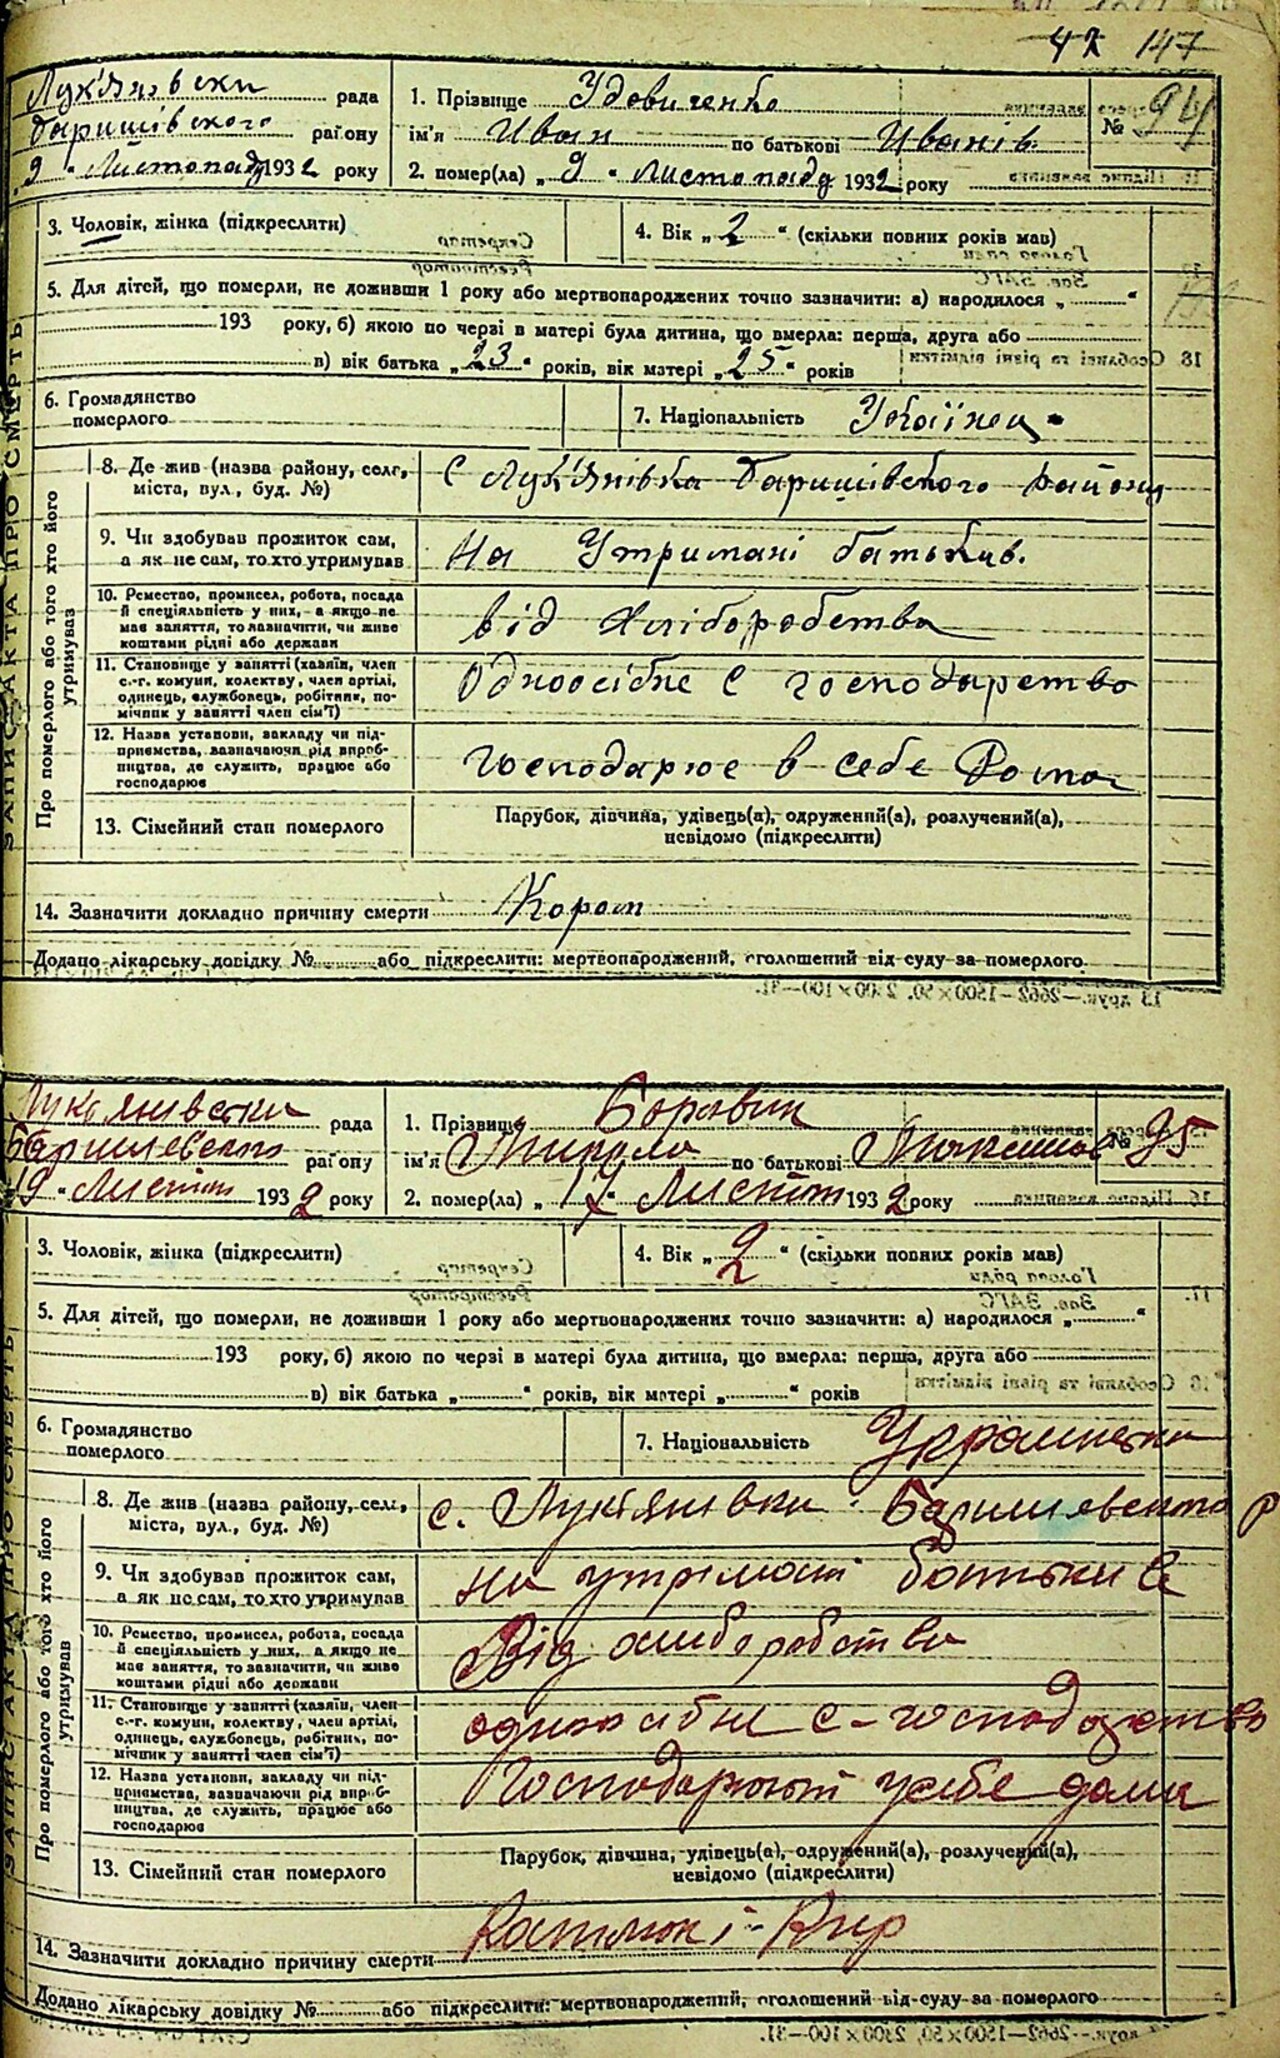 42 147
Лук'янівски рада
баришівского району
„9“ Листопаду 1932 року
1. Прізвище Удовиченко
ім'я Иван по батькові Иванів.
№ 94
2. помер(ла) „9“ Листопаду 1932 року
3. Чоловік, жінка (підкреслити)
4. Вік „2“ (скільки повних років мав)
5. Для дітей, що померли, не доживши 1 року або мертвонароджених точно зазначити: а) народилося „ “
193 року, б) якою по черзі в матері була дитина, що вмерла: перша, друга або
в) вік батька „23“ років, вік матері „25“ років
6. Громадянство
померлого
7. Національність Украінец
ЗАПИС АКТА ПРО СМЕРТЬ
Про померлого або того хто його
утримував
8. Де жив (назва району, села,
міста, вул., буд. №)
С Лук'янівка Баришівского району
9. Чи здобував прожиток сам,
а як не сам, то хто утримував
На Утримані батьків.
10. Ремество, промисел, робота, посада
й спеціяльність у них, а якщо не
має заняття, то зазначити, чи живе
коштами рідні або держави
від хліборобства
11. Становище у занятті (хазяїн, член
с.-г. комуни, колективу, член артілі,
одинець, службовець, робітник, по-
мічник у занятті член сім'ї)
Одноосібне С господарство
12. Назва установи, закладу чи під-
приємства, зазначаючи рід вироб-
ництва, де служить, працює або
господарює
Господарює в себе Дома
13. Сімейний стан померлого
Парубок, дівчина, удівець(а), одружений(а), розлучений(а),
невідомо (підкреслити)
14. Зазначити докладно причину смерти Корот
Додано лікарську довідку № або підкреслити: мертвонароджений, оголошений від суду за померлого.
13 друк.—2662—1500×50. 2300×100—31.
Лукьянивски рада
Баришевского району
19 Листоп 1932 року
1. Прізвище Боровик
ім'я Микола по батькові Максимов
№ 95
2. помер(ла) „17“ Листоп 1932 року
3. Чоловік, жінка (підкреслити)
4. Вік „2“ (скільки повних років мав)
5. Для дітей, що померли, не доживши 1 року або мертвонароджених точно зазначити: а) народилося „ “
193 року, б) якою по черзі в матері була дитина, що вмерла: перша, друга або
в) вік батька „ “ років, вік матері „ “ років
6. Громадянство
померлого
7. Національність
ЗАПИС АКТА ПРО СМЕРТЬ
Про померлого або того хто його
утримував
8. Де жив (назва району, села,
міста, вул., буд. №)
с. Лукьянивки Баришевского р
9. Чи здобував прожиток сам,
а як не сам, то хто утримував
на утримані батьків
10. Ремество, промисел, робота, посада
й спеціяльність у них, а якщо не
має заняття, то зазначити, чи живе
коштами рідні або держави
Від хлиборобства
11. Становище у занятті (хазяїн, член
с.-г. комуни, колективу, член артілі,
одинець, службовець, робітник, по-
мічник у занятті член сім'ї)
одноосібне с-господарство
12. Назва установи, закладу чи під-
приємства, зазначаючи рід вироб-
ництва, де служить, працює або
господарює
Господарюют у себе дома
13. Сімейний стан померлого
Парубок, дівчина, удівець(а), одружений(а), розлучений(а),
невідомо (підкреслити)
14. Зазначити докладно причину смерти і Кир
Додано лікарську довідку № або підкреслити: мертвонароджений, оголошений від суду за померлого